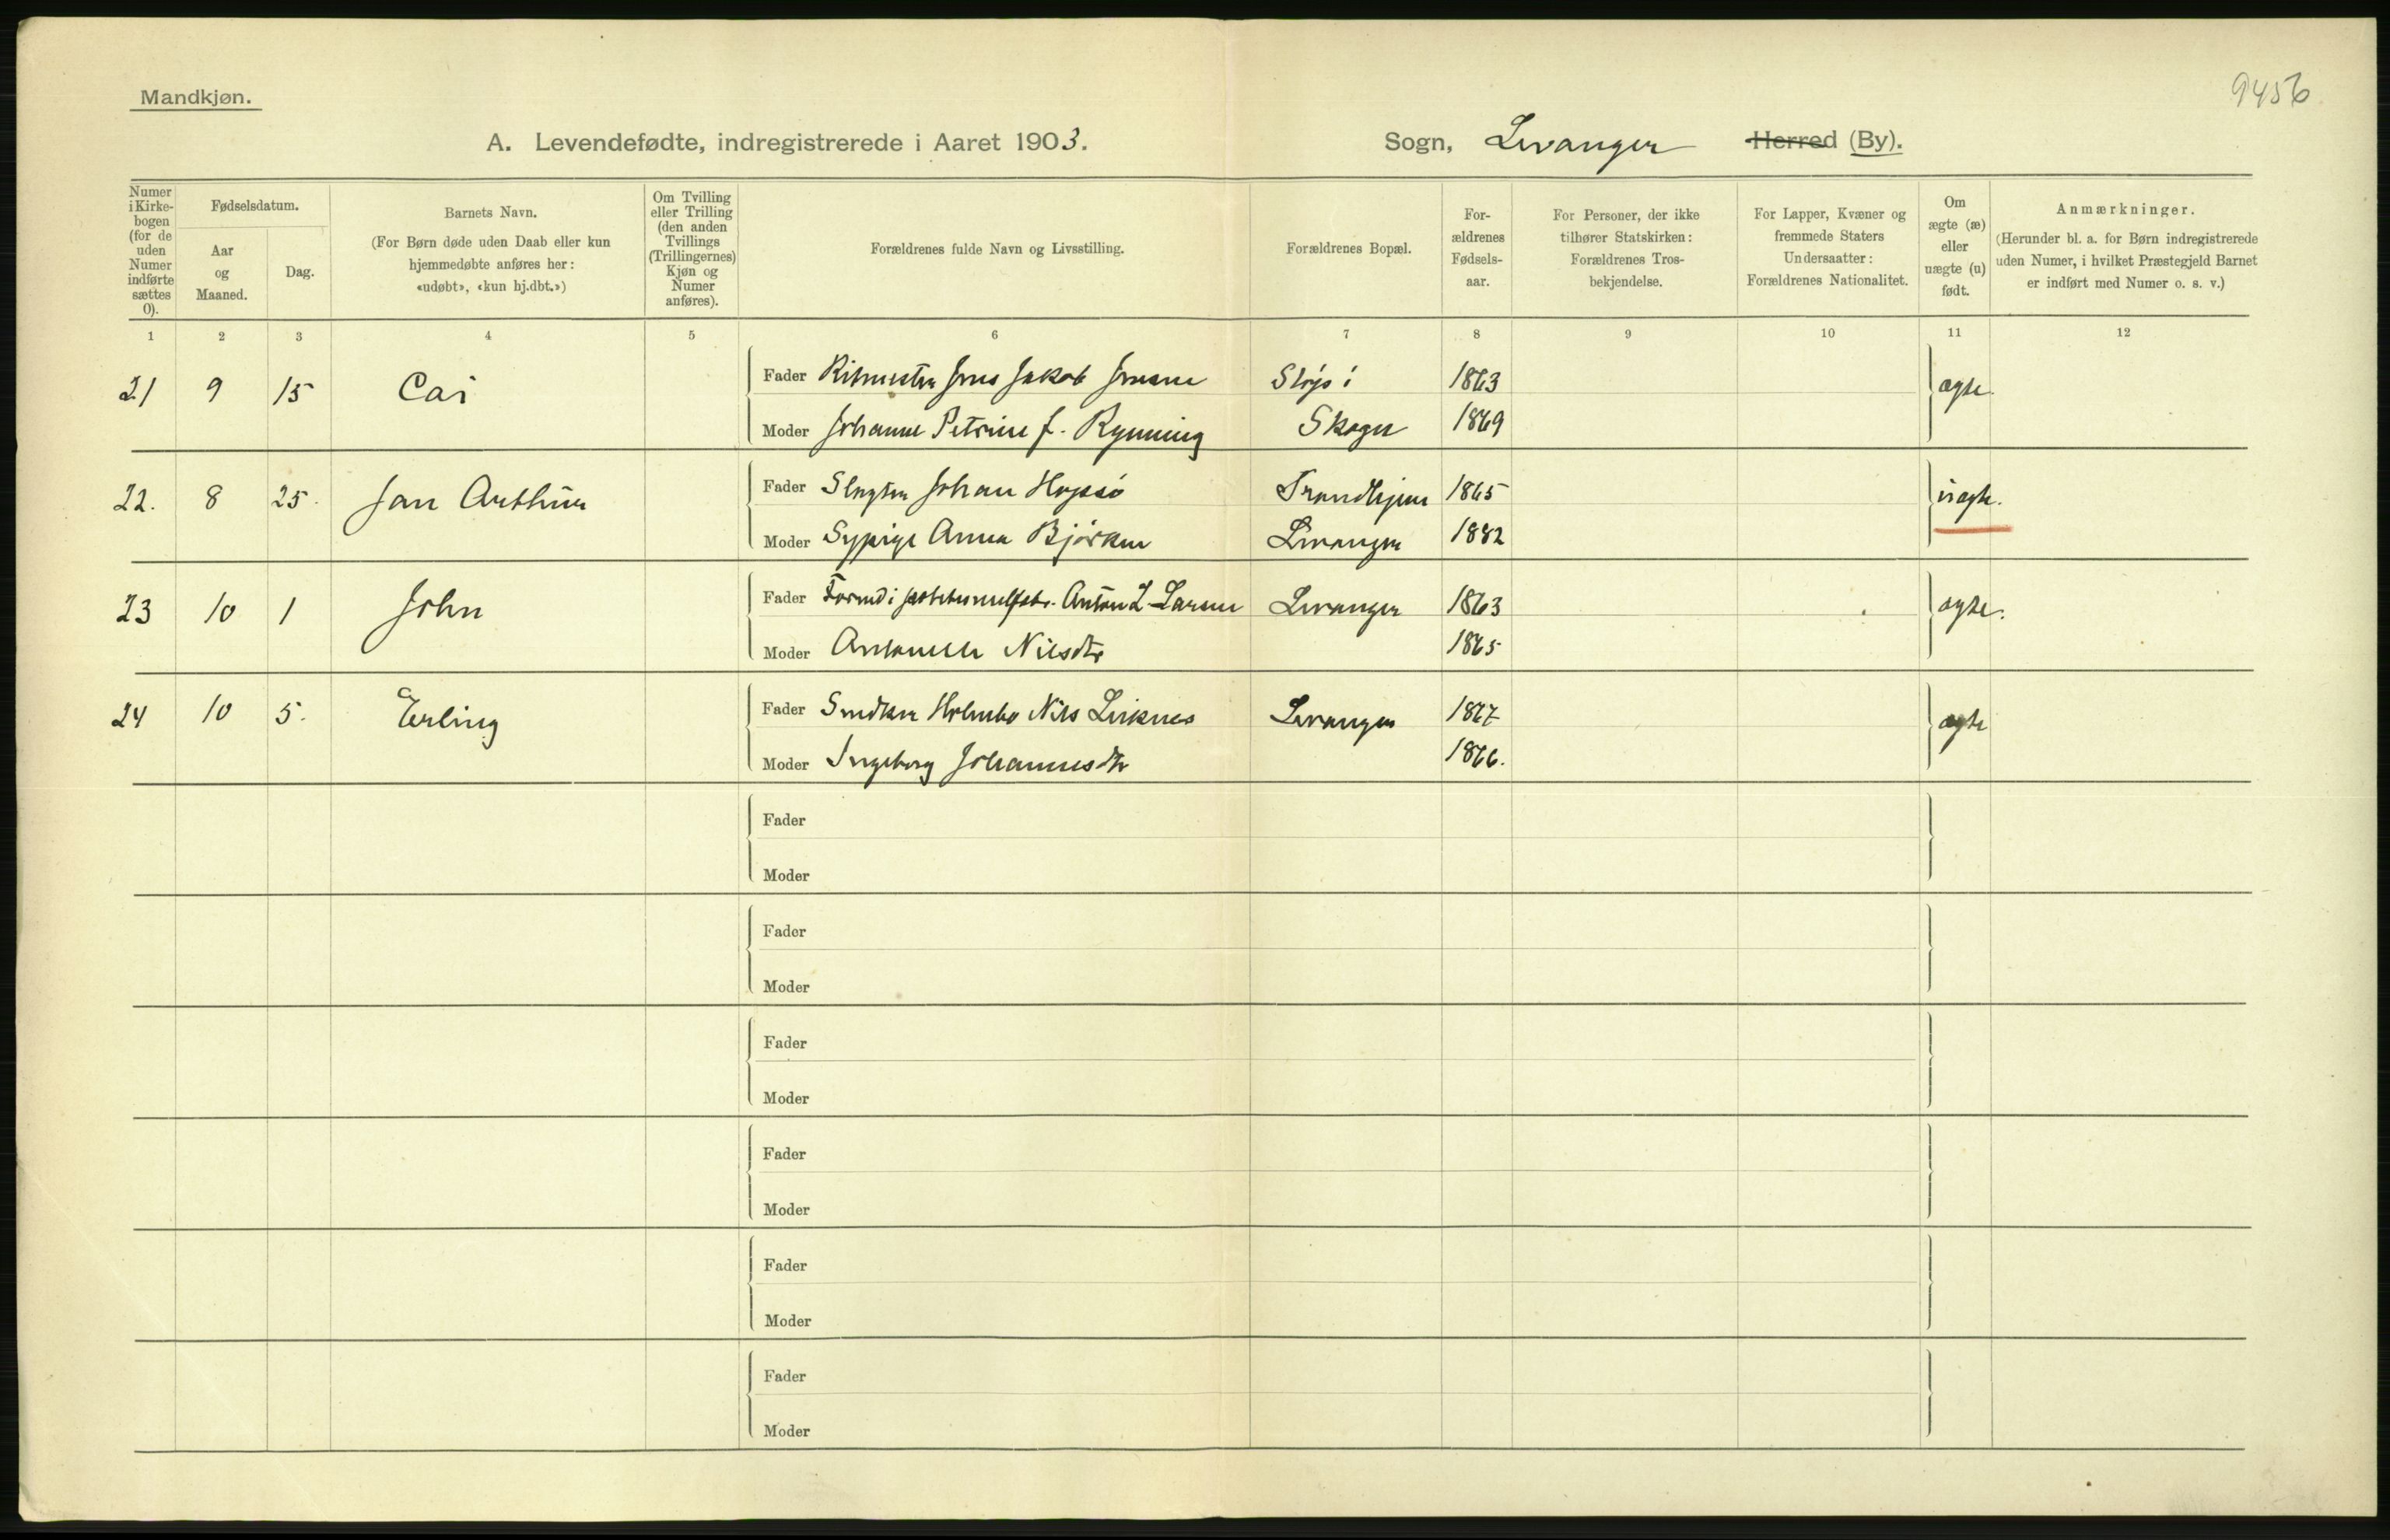 Mandkjøn.
9456
A. Levendefødte, indregistrerede i Aaret 1903.
Sogn, Levanger Herred (By).
Numer i Kirke-bogen (for de uden Numer indførte sættes 0).
Fødselsdatum.
Aar og Maaned.
Dag.
Barnets Navn.
(For Børn døde uden Daab eller kun hjemmedøbte anføres her: «udøbt», «kun hj.dbt.»)
Om Tvilling eller Trilling (den anden Tvillings (Trillingernes) Kjøn og Numer anføres).
Forældrenes fulde Navn og Livsstilling.
Forældrenes Bopæl.
For-ældrenes Fødsels-aar.
For Personer, der ikke tilhører Statskirken: Forældrenes Tros-bekjendelse.
For Lapper, Kvæner og fremmede Staters Undersaatter: Forældrenes Nationalitet.
Om ægte (æ) eller uægte (u) født.
Anmærkninger.
(Herunder bl. a. for Børn indregistrerede uden Numer, i hvilket Præstegjeld Barnet er indført med Numer o. s. v.)
1 2 3 4 5 6 7 8 9 10 11 12
21 9 15 Cai Fader Ritmester Jens Jakob Jensen 1863 ægte.
Moder Johanne Petrine f. Rynning Skogn 1869
22. 8 25. Jan Arthur Fader Slagter Johan Hopsø Trondhjem 1865 uægte.
Moder Sypige Anna Bjørken Levanger 1882
23 10 1 John Fader Anton L Larsen Levanger 1863 ægte.
Moder Antonette Nilsdtr 1865
24 10 5. Erling Fader Snedker Nils Leiknes Levanger 1867 ægte
Moder Ingeborg Johannesdtr 1866.
Fader
Moder
Fader
Moder
Fader
Moder
Fader
Moder
Fader
Moder
Fader
Moder